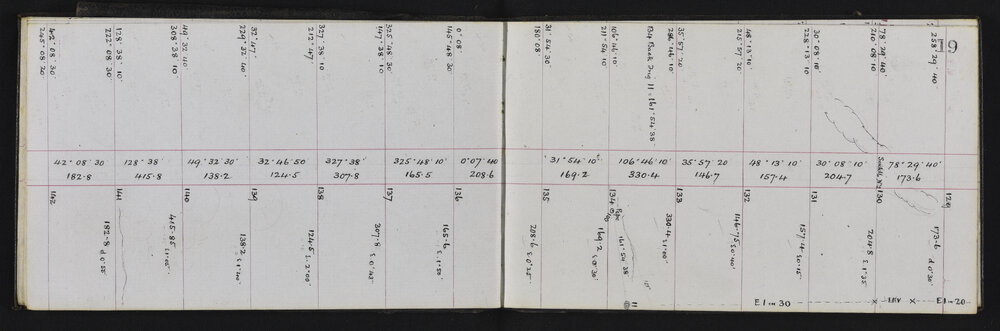 9
258° 29' 40"
78° 29' 40"
210° 08' 10
30° 08' 10
228° 13' 10
48° 13' 10
215° 57' 20
35° 57' 20
286° 46' 10
134 Back Trig 11 = 161° 54' 38
106° 46' 10
211° 54' 10
31° 54' 30
180° 08'
0° 08'
145° 48' 30
325° 48' 30
147° 38' 10
327° 38' 10
212° 47'
32° 47'
229° 32' 40
49° 32' 40
308° 38' 10
128° 38' 10
222° 08' 30
42° 08' 30
245° 08' 20
42° 08' 30
128° 38'
49° 32' 30
32° 46' 50
327° 38'
325° 48' 10
0° 07' 40
31° 54' 10"
106° 46' 10
35° 57' 20
48° 13' 10
30° 08' 10
78° 29' 40"
182.8
415.8
138.2
124.5
307.8
165.5
208.6
169.2
330.4
146.7
157.4
204.7
173.6
142
141
140
139
138
137
136
135
134
133
132
131
130
129
182.8 d 0° 55'
415.85 S 1° 00'
138.2 S 1° 40'
124.5 S 2° 00'
307.8 S 0° 43'
165.6 S 1° 50'
208.6 S 0° 25'
169.2 S 0° 30'
Pipe
161° 54' 38
330.4 S 1° 00'
146.75 S 0° 40'
157.4 S 0° 15'
204.8 S 1° 35'
173.6 d 0° 30'
11
E 1 in 30
X
LEV
X
E 1 in 20